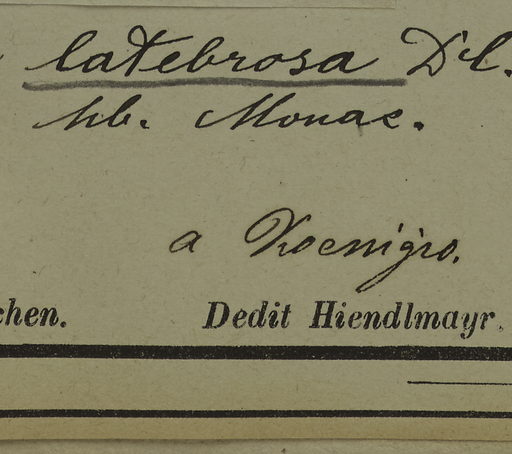 latebrosa Dl.
hb. Monac.
a Koenigio.
chen. Dedit Hiendlmayr.